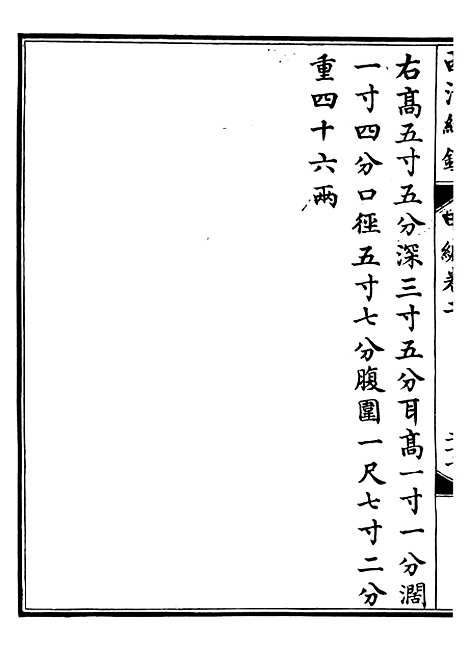 西清續鑑 甲編卷二
右髙五寸五分深三寸五分耳髙一寸一分濶
一寸四分口徑五寸七分腹圍一尺七寸二分
重四十六兩